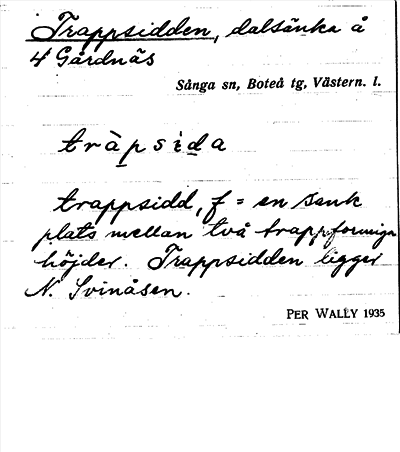 Trappsidden, dalsänka å
4 Gårdnäs
Sånga sn, Boteå tg, Västern. l.
tràpsida
trappsidd, f = en sank
plats mellan två trappformiga
höjder. Trappsidden ligger
N. Svinåsen.
PER WALLY 1935